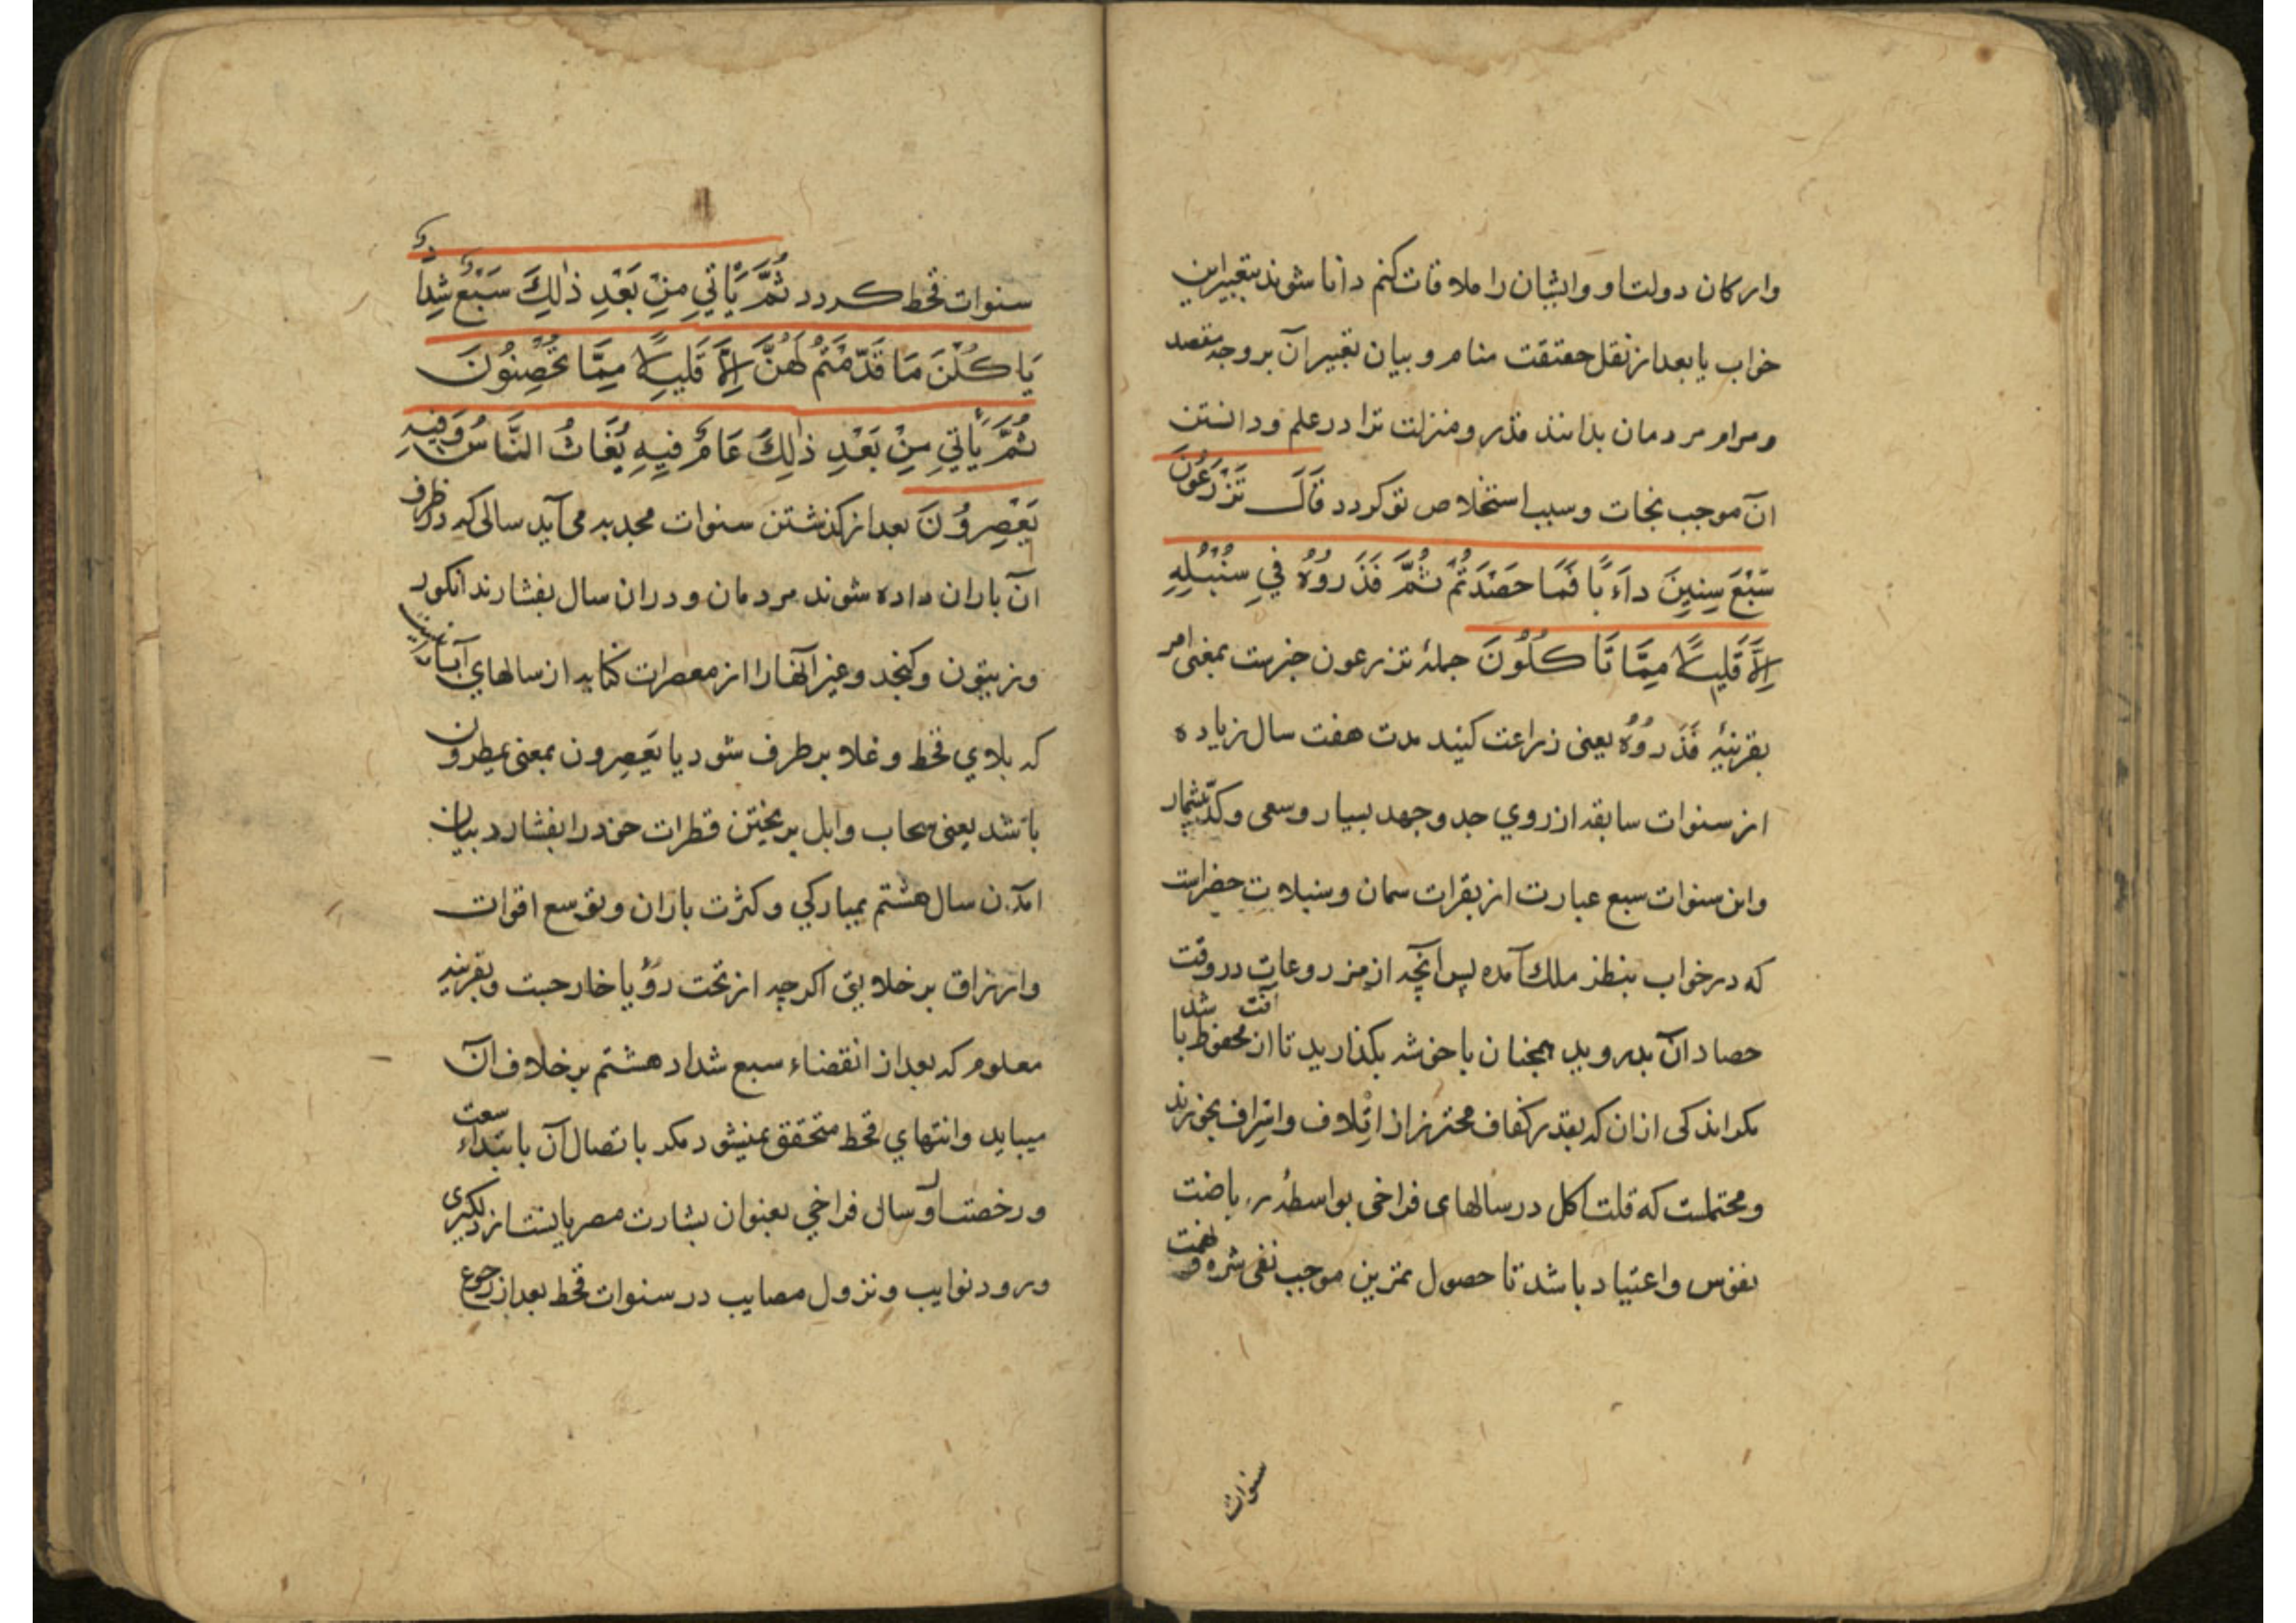 وارکان دولت او وایشان را ملاقات کنم دانا شوند بتعبیر این
خواب یا بعد از نقل حقیقت منام و بیان تعبیر آن بر وجه مقصد
ومرام مردمان بدانند قدر ومنزلت ترا در علم ودانستن
آن موجب نجات وسبب استخلاص تو کردد قَالَ تَزْرَعُونَ
سَبْعَ سِنِينَ دَاَءَبًا فَمَا حَصَدْتُمْ ثُمَّ فَذَرُوُهُ فِي سُنْبُلِهِ
اِلَّا قَلِيلًا مِمَّا تَأكُلُونَ جملهٔ تزرعون خبرست بمعنی امر
بقرینهٔ فَذَرُوُهُ یعنی زراعت کنید مدت هفت سال زیاده
از سنوات سابقه از روي جد وجهد بسیار وسعی وکدّ بیشمار
واین سنوات سبع عبارت از بقرات سمان وسنبلات خضراست
که در خواب بنظر ملک آمده پس آنچه از مزروعات در وقت
حصاد آن بدروید همچنان با خوشه بکذارید تا از آفت محفوظ باشد
مکر اندکی ازان که بقدر کفاف محترز از اتلاف واسراف بخورند
ومحتملست که قلت اکل در سالهای فراخی بواسطهٔ ریاضت
نفوس واعتیاد باشد تا حصول تمرین موجب نفی شره ونهمت
سنوات
سنوات قحط کردد ثُمَّ يَأْتِي مِنْ بَعْدِ ذٰلِكَ سَبْعٌ شِدَادٌ
يَاكُلْنَ مَا قَدَّمْتُمْ لَهُنَّ اِلَّا قَلِيلًا مِمَّا تُحْصِنُونَ
ثُمَّ يَأْتِي مِنْ بَعْدِ ذٰلِكَ عَامٌ فِيهِ يُغَاثُ النَّاسُ وَفِيهِ
يَعْصِرُونَ بعد از کذشتن سنوات مجدبه می آید سالی که در ظرف
آن باران داده شوند مردمان ودران سال بفشارند انکور
وزیتون وکنجد وغیر آنها را از معصرات کنایه از سالهاي
که بلاي قحط وغلا بر طرف شود یا یَعصِرون بمعنی یمطرون
باشد یعنی سحاب وابل بریختن قطرات خود را بفشارد بیان
آمدن سال هشتم بمبارکي وکثرت باران وتوسع اقوات
وارزاق بر خلایق اکرچه از تحت رؤیا خارجست وبقرینه
معلوم که بعد از انقضاء سبع شداد هشتم بر خلاف آن
میباید وانتهاي قحط متحقق نمیشود مکر باتصال آن بابتداء سعت
ورخصت اول سال فراخي بعنوان بشارت مصریانست از دلکیری
ورود نوایب ونزول مصایب در سنوات قحط بعد از رجوع